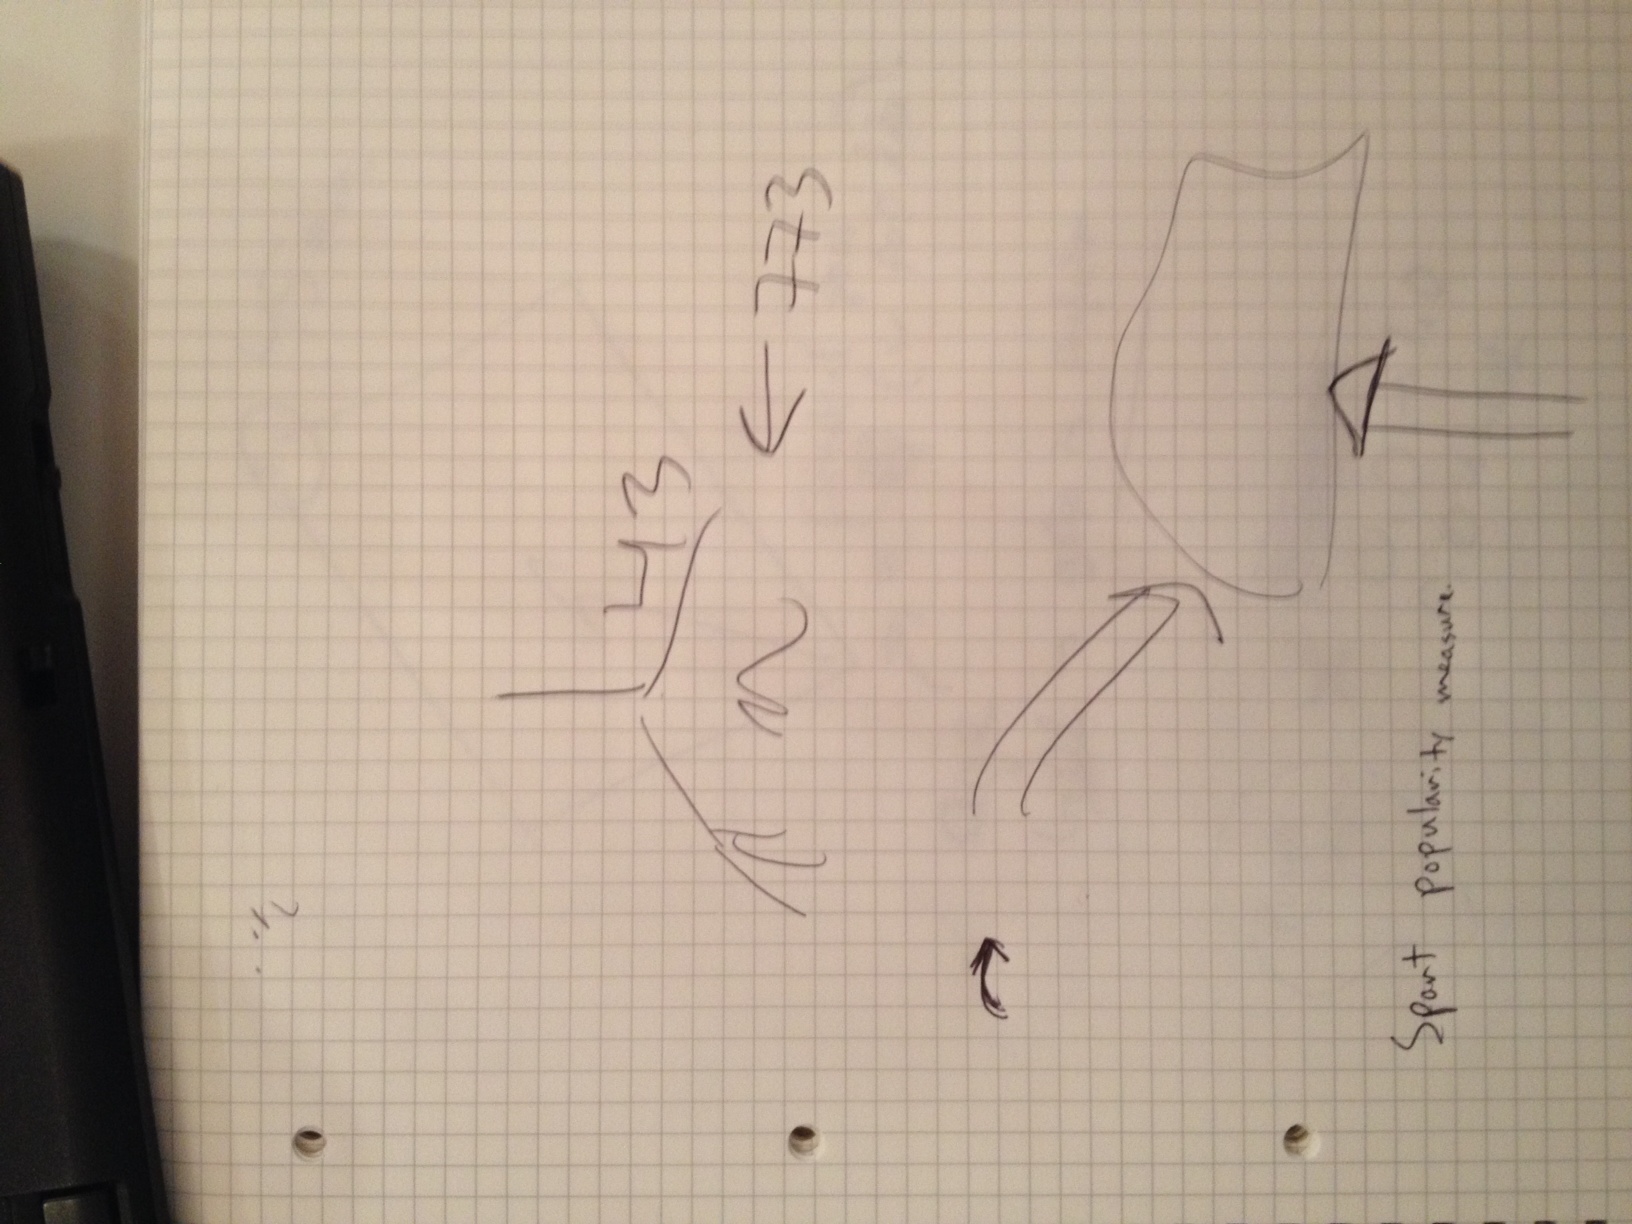 43
773
Sport popularity measure.